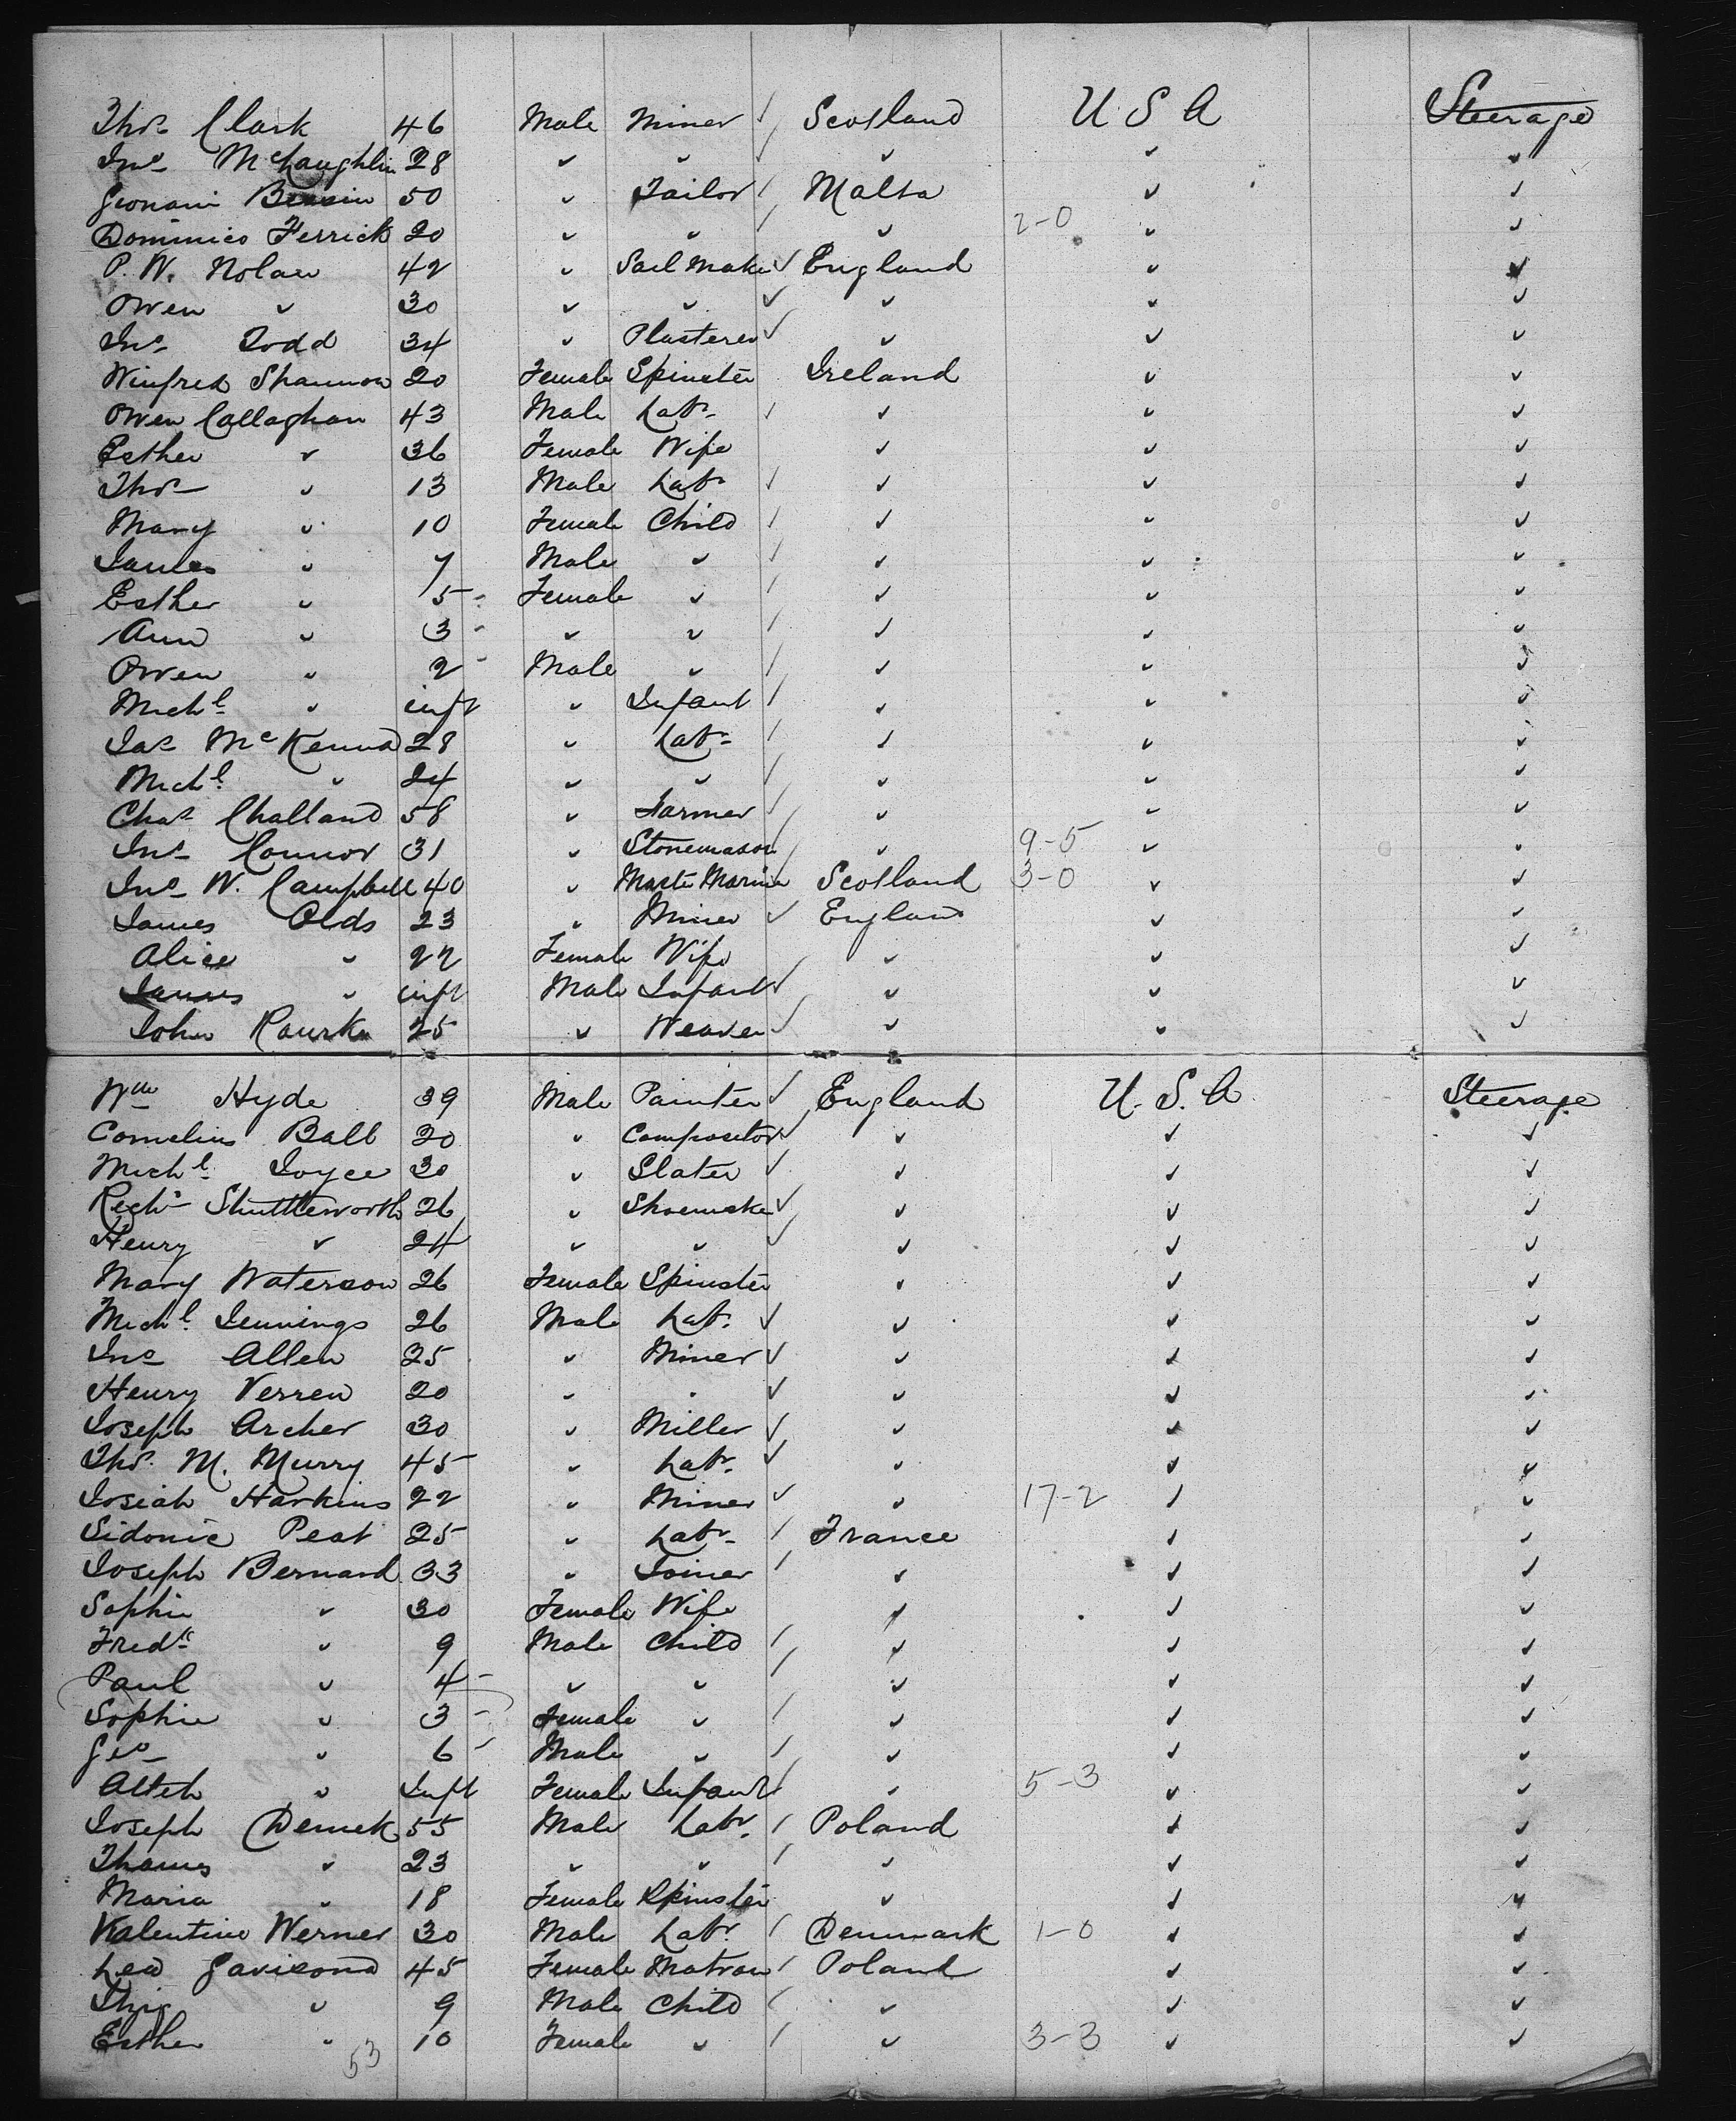 Thos Clark 46 Male Miner Scotland U S A Steerage
Jno McLaughlin 28 " " " " "
Giovani 50 " Tailor Malta " "
Dominico Ferrick 20 " " " 2-0 " "
P. W. Nolan 42 " Sail Make England " "
Owen " 30 " " " " "
Jno Todd 34 " Plasterer " " "
Winfred Shannon 20 Female Spinster Ireland " "
Owen Callaghan 43 Male Labr " " "
Esther " 36 Female Wife " " "
Thos " 13 Male Labr " " "
Mary " 10 Female Child " " "
James " 7 Male " " " "
Esther " 5 Female " " " "
Ann " 3 " " " " "
Owen " 2 Male " " " "
Michl " inft " Infant " " "
Jas McKenna 28 " Labr " " "
Michl " 24 " " " " "
Chas Challand 58 " Farmer " " "
Jno Connor 31 " Stonemason " 9-5 " "
Jno W. Campbell 40 " Maste Marine Scotland 3-0 " "
James Olds 23 " Miner England " "
Alice " 22 Female Wife " " "
James " inft Male Infant " " "
John Rourke 25 " Weaver " " "
Wm Hyde 39 Male Painter England U. S. A Steerage
Cornelius Ball 30 " Compositor " " "
Michl Joyce 30 " Slater " " "
Richd Shuttleworth 26 " Shoemaker " " "
Henry " 24 " " " " "
Mary Waterson 26 Female Spinster " " "
Michl Jennings 26 Male Labr " " "
Jno Allen 25 " Miner " " "
Henry Verren 20 " " " " "
Joseph Archer 30 " Miller " " "
Thos. M. Murry 45 " Labr " " "
Josiah Harkins 22 " Miner " 17-2 " "
Sidonie Peat 25 " Labr France " "
Joseph Bernard 33 " Joiner " " "
Sophie " 30 Female Wife " " "
Fredk " 9 Male Child " " "
Paul " 4 " " " " "
Sophie " 3 Female " " " "
Geo " 6 Male " " " "
" Inft Female Infant " 5-3 " "
Joseph Demek 55 Male Labr Poland " "
Thomas " 23 " " " " "
Maria " 18 Female Spinster " " "
Valentine Werner 30 Male Labr Denmark 1-0 " "
Lea 45 Female Matron Poland " "
" 9 Male Child " " "
Esther " 10 Female " " 3-3 " "
53